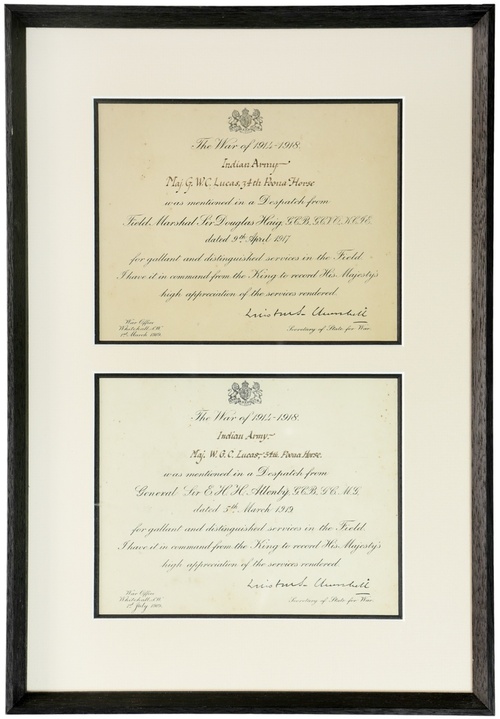 The War of 1914-1918.
Indian Army
Maj. G. W. C. Lucas, 34th Poona Horse
was mentioned in a Despatch from
Field Marshal Sir Douglas Haig, G.C.B., G.C.V.O., K.C.I.E.
dated 9th April 1917
for gallant and distinguished services in the Field.
I have it in command from the King to record His Majesty's
high appreciation of the services rendered.
Winston S. Churchill
War Office
Whitehall, S.W.
1st March 1919.
Secretary of State for War.
The War of 1914-1918.
Indian Army.
Maj. W. G. C. Lucas, 34th Poona Horse.
was mentioned in a Despatch from
General Sir E. H. H. Allenby, G.C.B., G.C.M.G.
dated 5th March 1919
for gallant and distinguished services in the Field.
I have it in command from the King to record His Majesty's
high appreciation of the services rendered.
Winston S. Churchill
War Office
Whitehall, S.W.
1st July 1919.
Secretary of State for War.